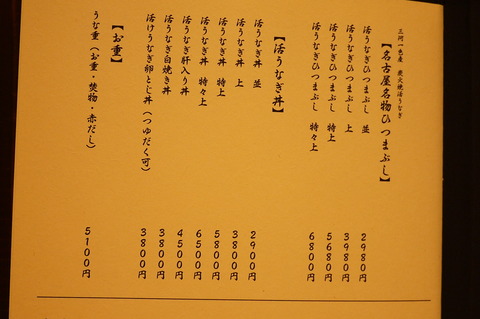 三河一色産 炭火焼活うなぎ
【名古屋名物ひつまぶし】
活うなぎひつまぶし 並 2980円
活うなぎひつまぶし 上 3980円
活うなぎひつまぶし 特上 5680円
活うなぎひつまぶし 特々上 6800円
【活うなぎ丼】
活うなぎ丼 並 2900円
活うなぎ丼 上 3800円
活うなぎ丼 特上 5800円
活うなぎ丼 特々上 6500円
活うなぎ肝入り丼 4500円
活うなぎ白焼き丼 3800円
活けうなぎ卵とじ丼(つゆだく可) 3800円
【お重】
うな重(お重・焚物・赤だし) 5100円